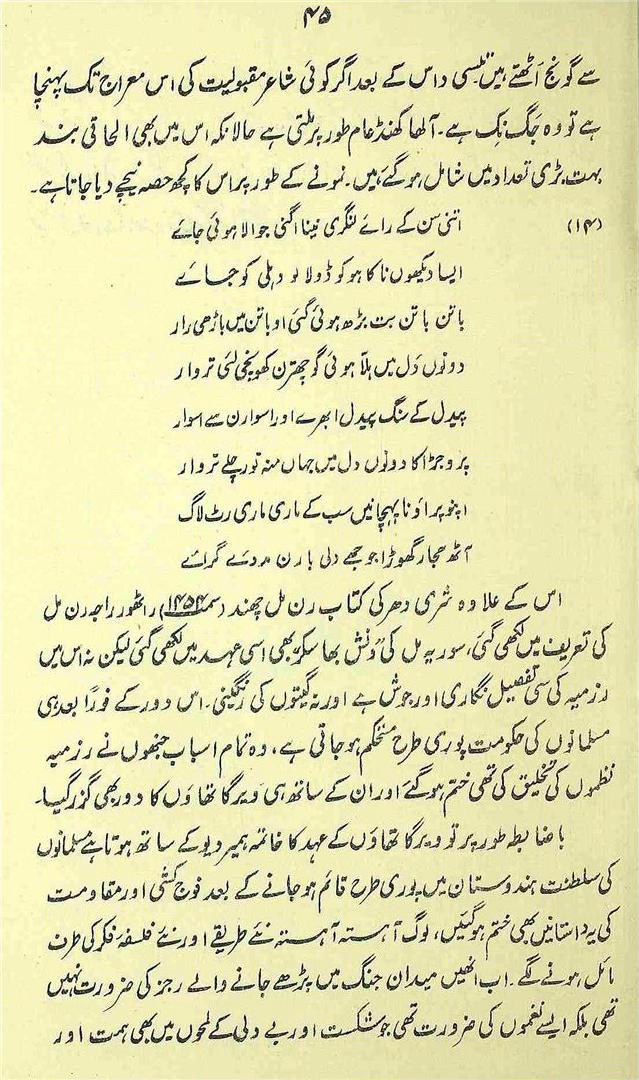 ۴۵
سے گونج اٹھتے ہیں تلسی داس کے بعد اگر کوئی شاعر مقبولیت کی اس معراج تک پہنچا
ہے تو وہ جگ نِک ہے۔ آلھا کھنڈ عام طور پر ملتی ہے حالانکہ اس میں بھی الحاقی بند
بہت بڑی تعداد میں شامل ہو گئے ہیں۔ نمونے کے طور پر اس کا کچھ حصہ نیچے دیا جاتا ہے۔
(۱۴) اتنی سن کے رائے لنگری نینا اگنی جوالا ہوئی جائے
ایسا دیکھوں نا کا ہو کو ڈولا لو دہلی کو جائے
باتن باتن بت بڑھ ہوئی گئی او باتن میں باڑھی رار
دونوں دَل میں ہلّا ہوئی گو چھترن کھینچی لئی تروار
پیدل کے سنگ پیدل ابھرے اور اسوارن سے اسوار
پروجڑا کا دونوں دل میں جہاں منہ تور چلے تروار
اپنو پر اؤ نا پہچانیں سب کے ماری ماری رٹ لاگ
آٹھ ہجار گھوڑا جوجھے دلی بارن مردے گرائے
اس کے علاوہ شری دھر کی کتاب رن مل چھند (سمت ۱۴۵۴) راٹھور راجہ رن مل
کی تعریف میں لکھی گئی، سوریہ مل کی وَنش بھاسکر بھی اسی عہد میں لکھی گئی لیکن نہ اس میں
رزمیہ کی سی تفصیل نگاری اور جوش ہے اور نہ گیتوں کی رنگینی۔ اس دور کے فوراً بعد ہی
مسلمانوں کی حکومت پوری طرح مستحکم ہو جاتی ہے، وہ تمام اسباب جنھوں نے رزمیہ
نظموں کی تخلیق کی تھی ختم ہو گئے اور ان کے ساتھ ہی ویر گاتھاؤں کا دور بھی گزر گیا۔
باضابطہ طور پر تو ویر گاتھاؤں کے عہد کا خاتمہ ہمیر دیو کے ساتھ ہوتا ہے مسلمانوں
کی سلطنت ہندوستان میں پوری طرح قائم ہو جانے کے بعد فوج کشی اور مقاومت
کی یہ داستانیں بھی ختم ہو گئیں، لوگ آہستہ آہستہ نئے طریقے اور نئے فلسفۂ فکر کی طرف
مائل ہونے لگے۔ اب انھیں میدان جنگ میں پڑھے جانے والے رجز کی ضرورت نہیں
تھی بلکہ ایسے نغموں کی ضرورت تھی جو شکست اور بے دلی کے لمحوں میں بھی ہمت اور